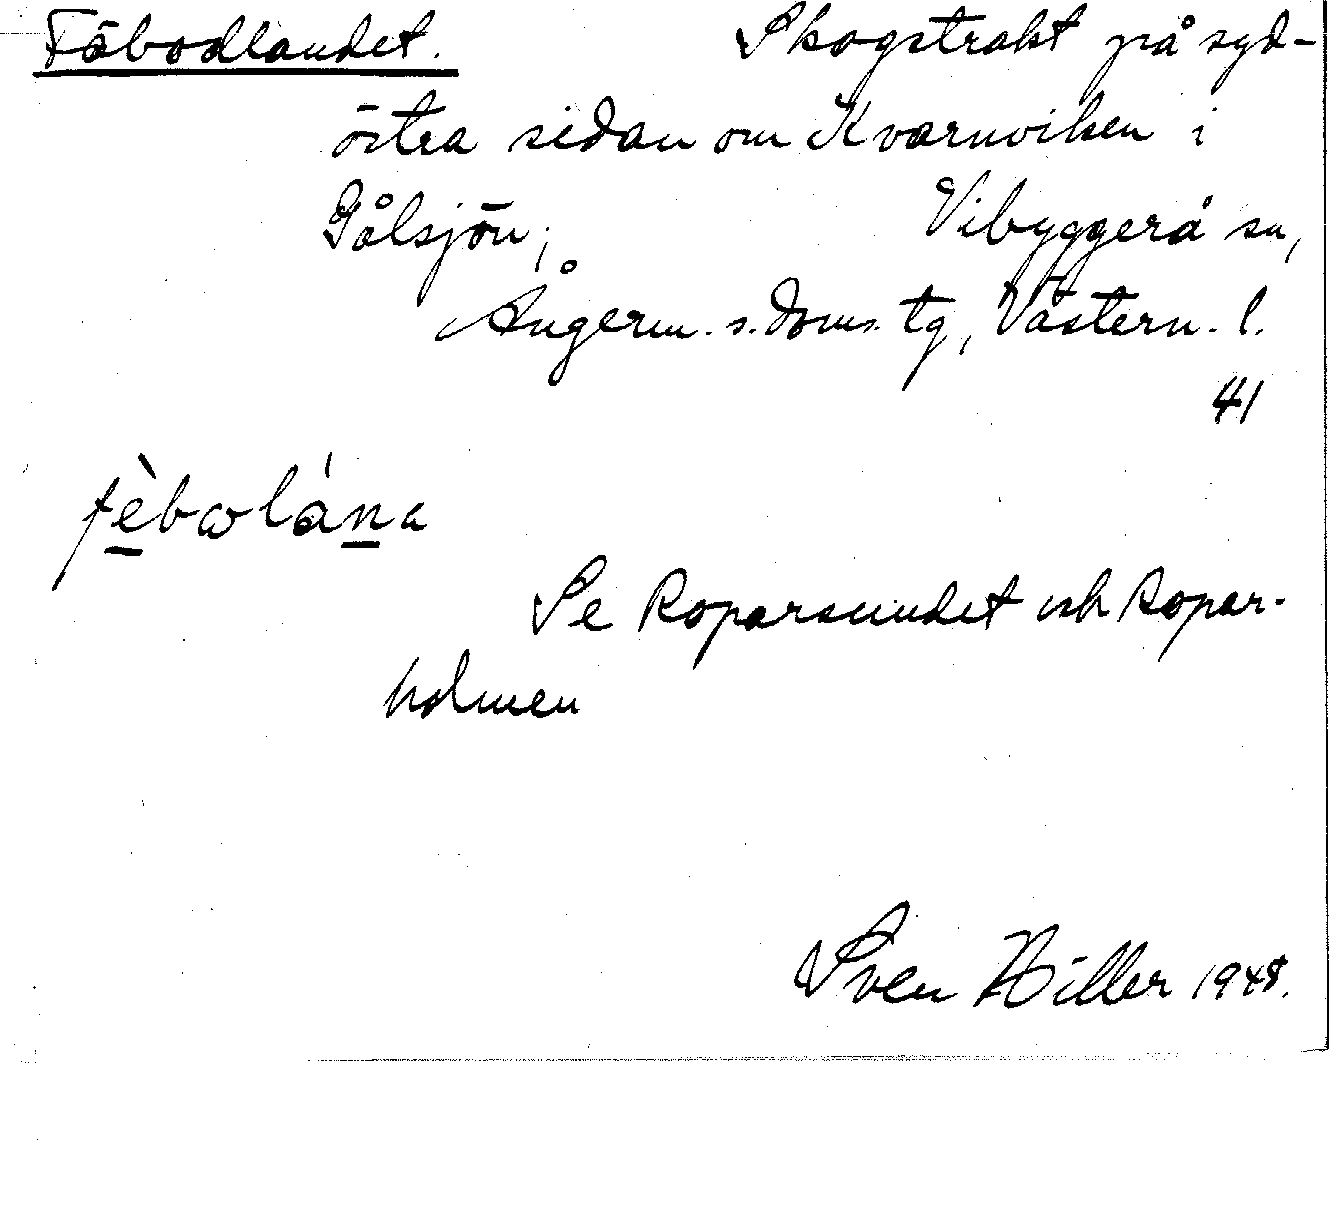 Fäbodlandet. Skogstrakt på syd-
östra sidan om Kvarnviken i
Gålsjön; Vibyggerå sn,
Ångerm. s. doms. tg, Västern. l.
41
fèbωlána
Se Roparsundet och Ropar-
holmen
Sven Hiller 1948.